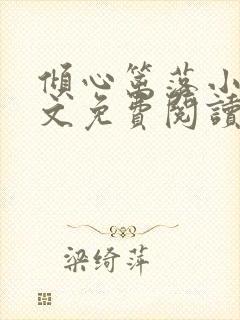 傾心篱落小
文免費閱讀
梁绮萍